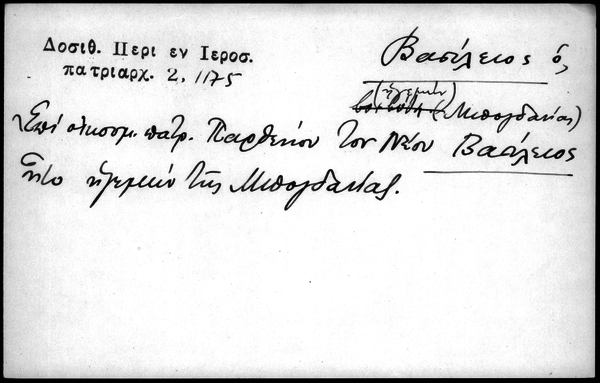 Δοσιθ. Περι εν Ιεροσ.
πατριαρχ. 2, 1175
Βασίλειος ὁ,
(ἡγεμών)
(Μπογδανίας)
Ἐπί οἰκουμ. πατρ. Παρθενίου τοῦ Νέου Βασίλειος
ἦτο ἡγεμών τῆς Μπογδανίας.